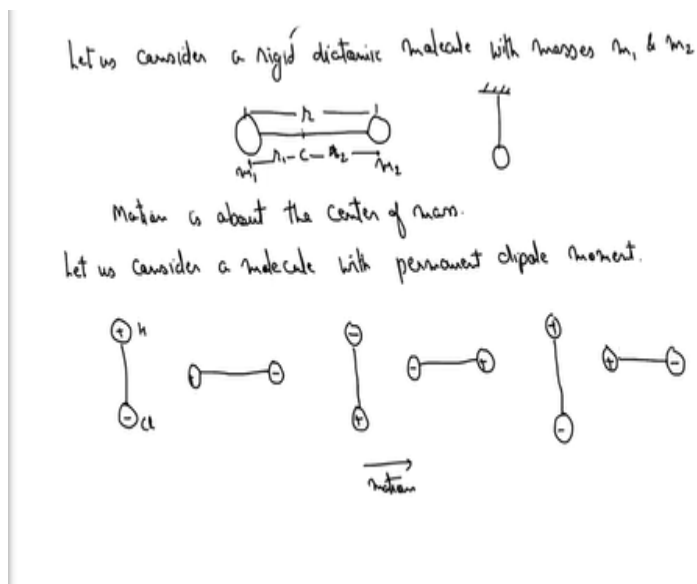 Let us consider a rigid diatomic molecule with masses m₁ & m₂
r
m₁ r₁ - c - r₂ m₂
Motion is about the center of mass.
Let us consider a molecule with permanent dipole moment.
+ H - + -
+ - - + + -
- Cl + -
motion